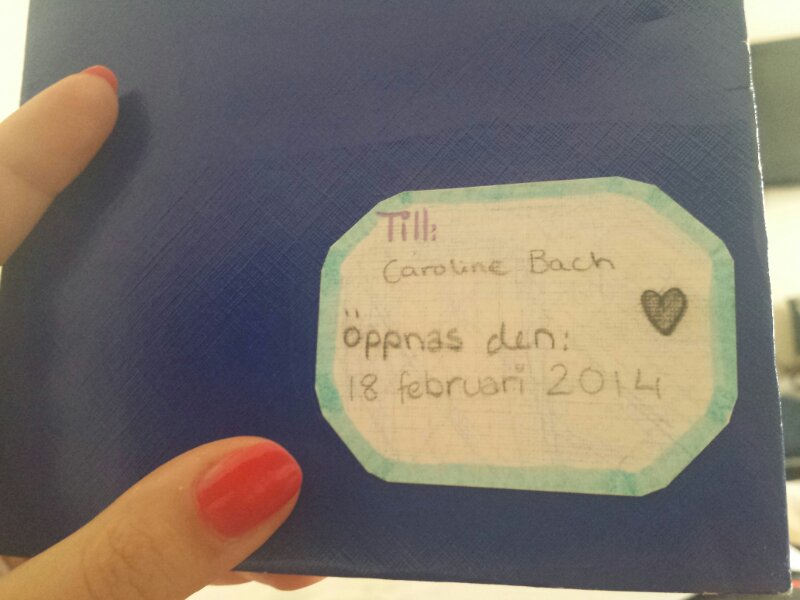 Till:
Caroline Bach
Öppnas den:
18 februari 2014